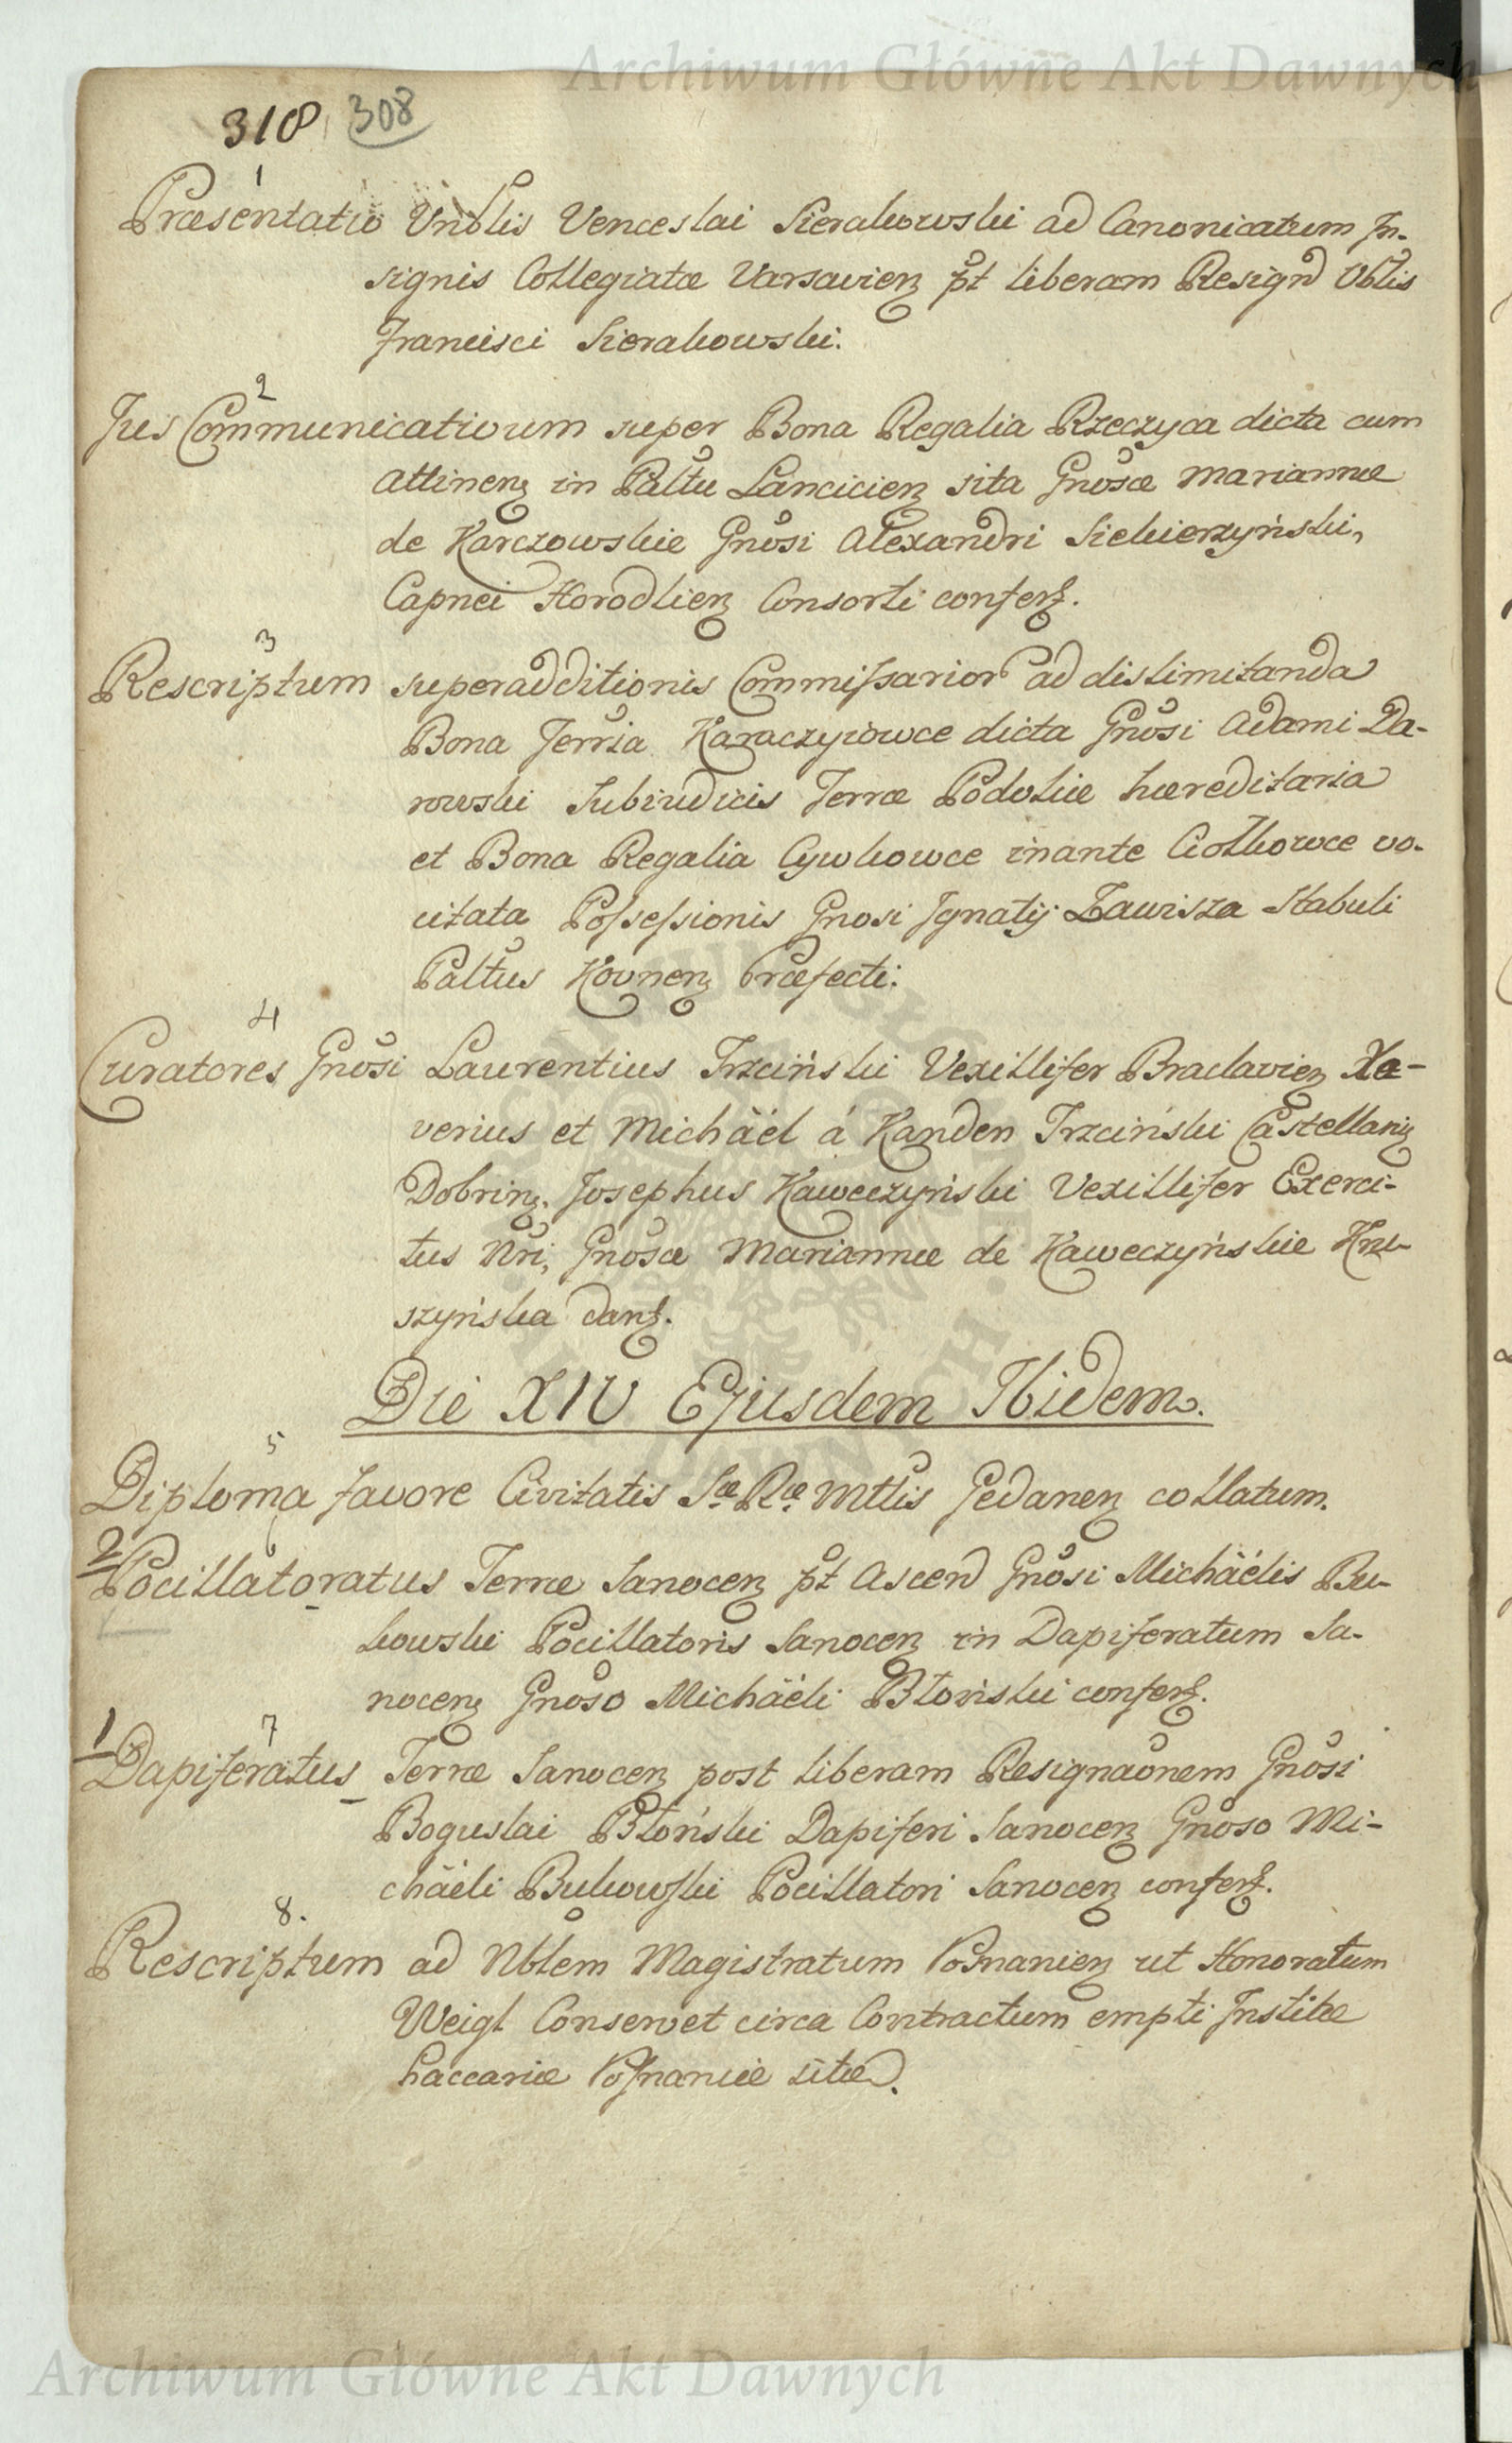 Archiwum Główne Akt Dawnych
318 308
1
Præsentatio Vnblis Venceslai Sierakowski ad Canonicatum In-
signis Collegiatæ Varsavien pt liberam Resign Vblis
Francisci Sierakowski.
2
Jus Communicativum super Bona Regalia Rzeczyca dicta cum
attinen in Paltu Lancicien sita Gnosæ Mariannæ
de Karczowskie Gnosi Alexandri Siekierzyński,
Capnei Horodlien Consorti confert.
3
Rescriptum superadditionis Commissarior ad dislimitanda
Bona Terrsia Karaczyiowce dicta Gnosi Adami Da-
rowski Subiudicis Terræ Podoliæ hæreditaria
et Bona Regalia Cywkowce inante Ciołkowce vo-
citata Possessionis Gnosi Ignatij Zawisza Stabuli
Paltus Kovnen Præfecti.
4
Curatores Gnosi Laurentius Trzciński Vexillifer Braclavien Xa-
verius et Michäél á Kanden Trzciński Castellani
Dobrin. Josephus Kaweczyński Vexillifer Exerci-
tus Nri, Gnosæ Mariannæ de Kaweczyńskie Kru-
szyńska dant.
Die XIV Ejusdem Ibidem.
5
Diploma favore Civitatis Sæ Ræ Mttis Gedanen collatum.
2 6
Pocillatoratus Terræ Sanocen pt Ascen Gnosi Michäélis Bu-
kowski Pocillatoris Sanocen in Dapiferatum Sa-
nocen Gnoso Michäéli Błoński confert.
1 7
Dapiferatus Terræ Sanocen post liberam Resignaonem Gnosi
Boguslai Błoński Dapiferi Sanocen Gnoso Mi-
chäéli Bukowski Pocillatori Sanocen confert.
8.
Rescriptum ad Nblem Magistratum Posnanien ut Honoratum
Weigl Conservet circa Contractum empti Institæ
Laccariæ Posnaniæ sitæ.
Archiwum Główne Akt Dawnych